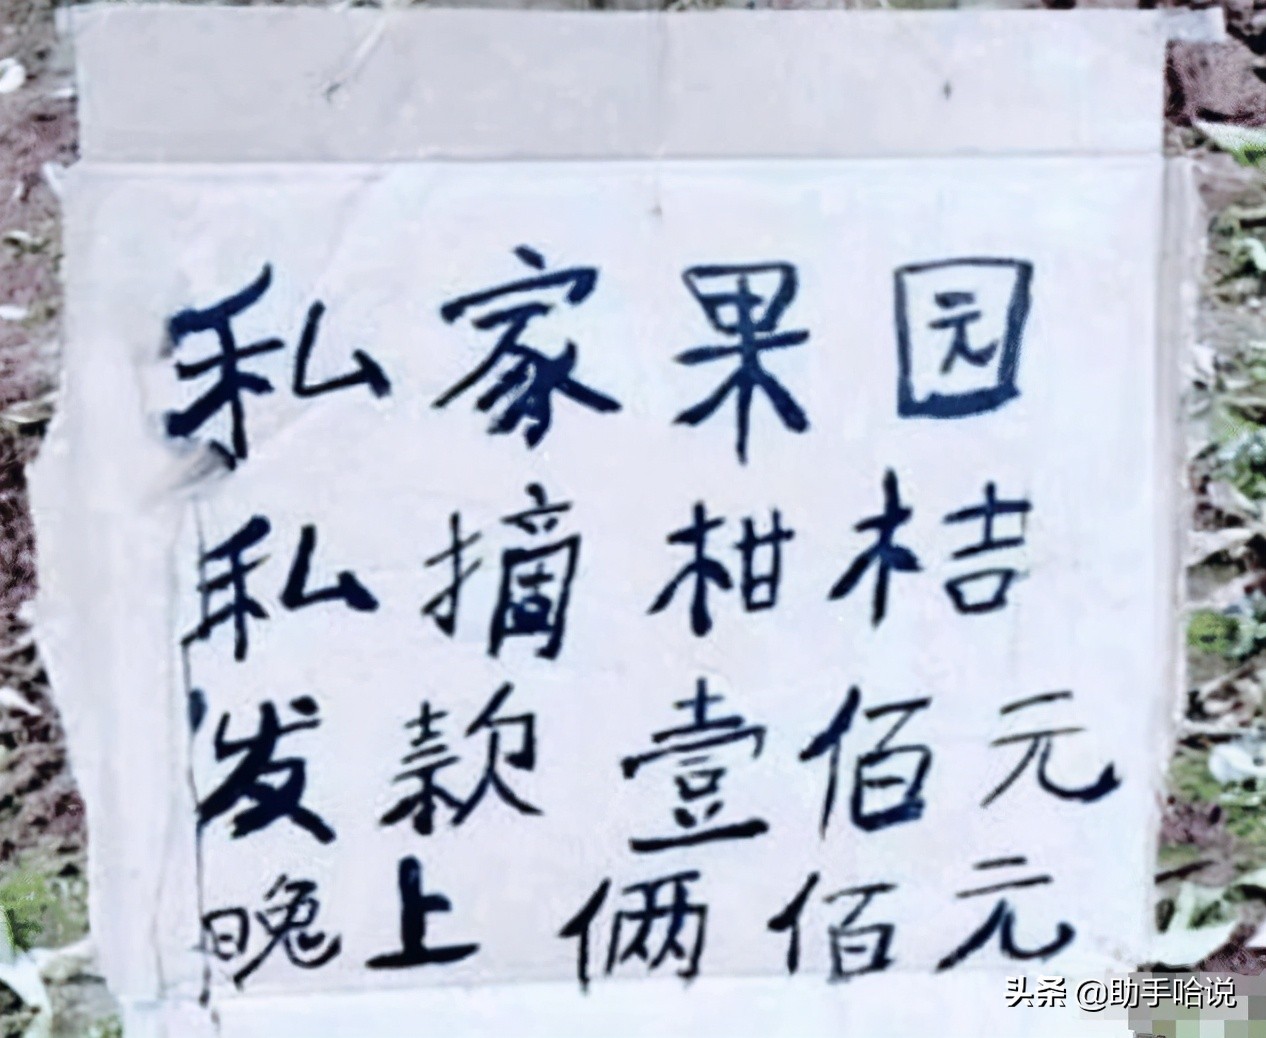 私家果园
私摘柑桔
发款壹佰元
晚上俩佰元
头条 @助手哈说